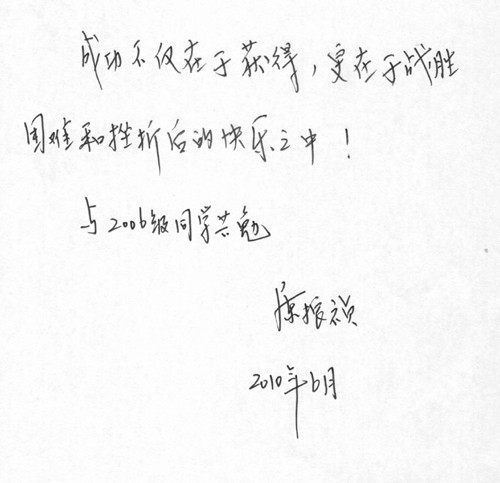 成功不仅在于获得，更在于战胜
困难和挫折后的快乐之中！
与2006级同学共勉
振祯
2010年6月